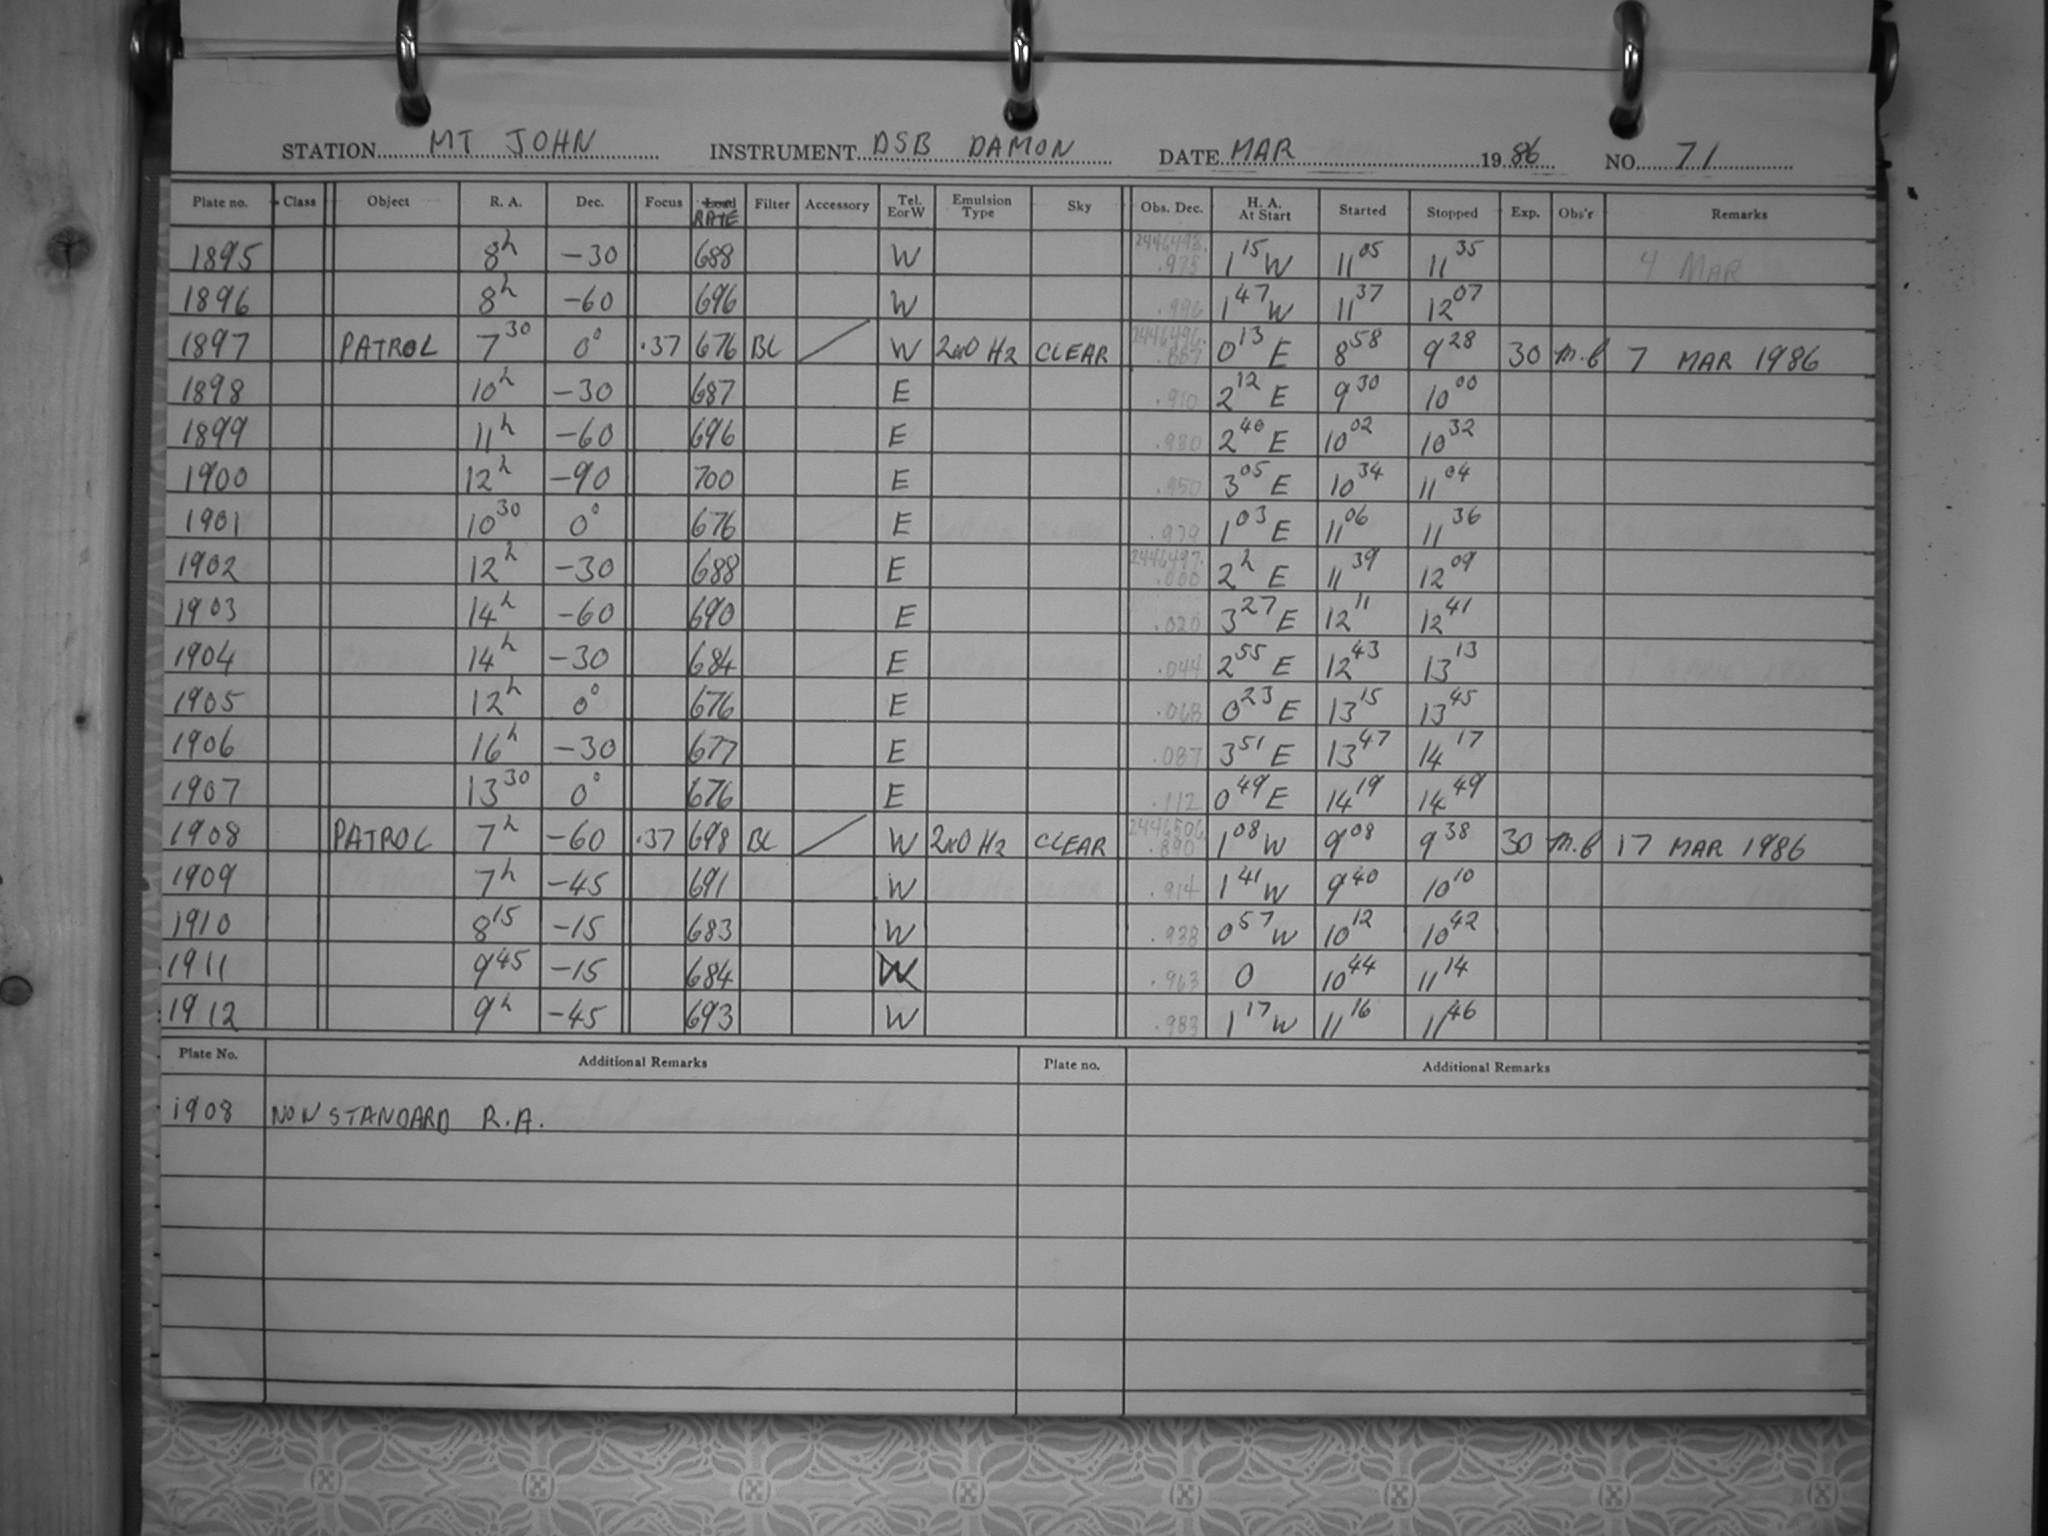 STATION MT JOHN INSTRUMENT DSB DAMON DATE MAR 19 86 NO. 71
Plate no. Class Object R. A. Dec. Focus Load RATE Filter Accessory Tel. E or W Emulsion Type Sky Obs. Dec. H. A. At Start Started Stopped Exp. Obs'r Remarks
1895 8h -30 688 W .975 1 15 W 11 05 11 35 4 MAR
1896 8h -60 696 W .996 1 47 W 11 37 12 07
1897 PATROL 7 30 0° .37 676 BL W 2ND H2 CLEAR 2446496. .887 0 13 E 8 58 9 28 30 m.b 7 MAR 1986
1898 10h -30 687 E .910 2 12 E 9 30 10 00
1899 11h -60 696 E .930 2 40 E 10 02 10 32
1900 12h -90 700 E .950 3 05 E 10 34 11 04
1901 10 30 0° 676 E .979 1 03 E 11 06 11 36
1902 12h -30 688 E 2446497. .000 2h E 11 39 12 09
1903 14h -60 690 E .020 3 27 E 12 11 12 41
1904 14h -30 684 E .044 2 55 E 12 43 13 13
1905 12h 0° 676 E .068 0 23 E 13 15 13 45
1906 16h -30 677 E .087 3 51 E 13 47 14 17
1907 13 30 0° 676 E .112 0 49 E 14 19 14 49
1908 PATROL 7h -60 .37 698 BL W 2ND H2 CLEAR 2446506. .890 1 08 W 9 08 9 38 30 m.b 17 MAR 1986
1909 7h -45 691 W .914 1 41 W 9 40 10 10
1910 8 15 -15 683 W .938 0 57 W 10 12 10 42
1911 9 45 -15 684 W .963 0 10 44 11 14
1912 9h -45 693 W .983 1 17 W 11 16 11 46
Plate No. Additional Remarks Plate no. Additional Remarks
1908 NON STANDARD R.A.